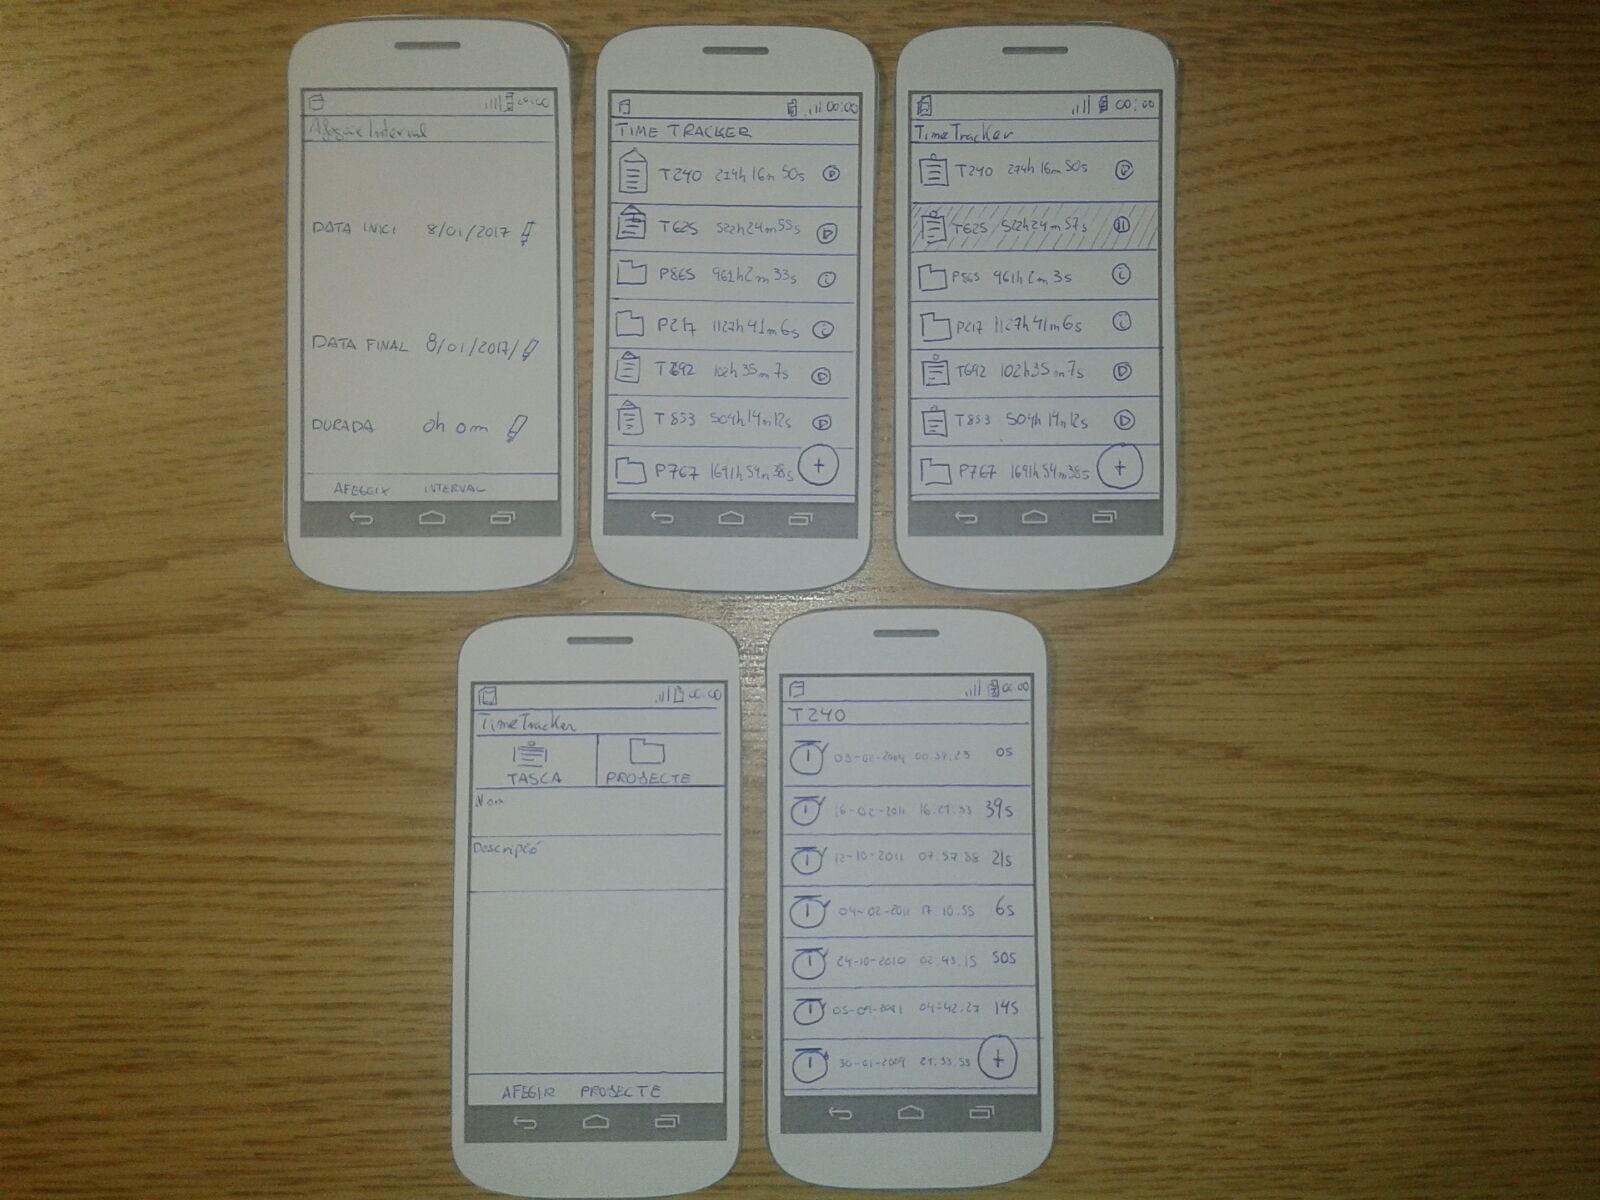 00:00
Afegir Interval
DATA INICI 8/01/2017
DATA FINAL 8/01/2017
DURADA 0h 0m
AFEGEIX INTERVAL
00:00
TIME TRACKER
T240 274h 16m 50s
T625 522h 24m 55s
P865 961h 2m 33s
P217 1127h 41m 6s
T692 102h 35m 7s
T853 504h 14m 12s
P767 1691h 54m 38s +
00:00
TimeTracker
T240 274h 16m 50s
T625 522h 24m 57s
P865 961h 2m 3s
P217 1127h 41m 6s
T692 102h 35m 7s
T853 504h 14m 12s
P767 1691h 54m 38s +
00:00
TimeTracker
TASCA PROJECTE
Nom
Descripció
AFEGIR PROJECTE
00:00
T240
0s
16-02-2011 39s
12-10-2011 21s
04-02-2011 17.10.55 6s
24-10-2010 02.43.15 50s
04:42.27 14s
30-01-2009 21.33.53 +